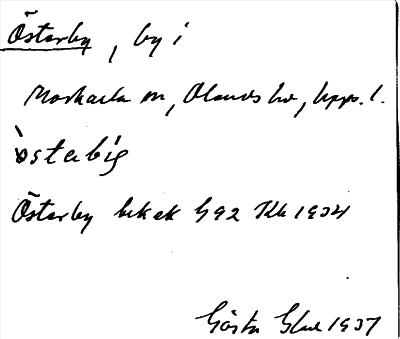 Österby, by i
Morkarla sn, Olands hd, Upps. l.
òstabig
Österby bk ek G 92 Kb 1934
Gösta 1937